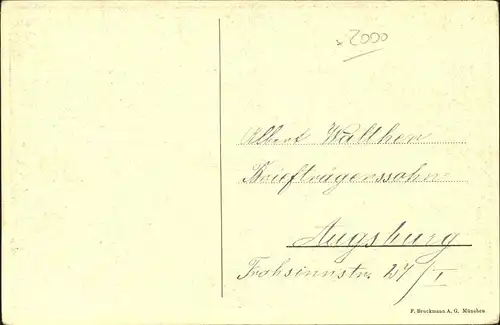 2000
Albert Walther
Briefträgerssohn
Augsburg
Frohsinnstr. 27/I
F. Bruckmann A. G. München